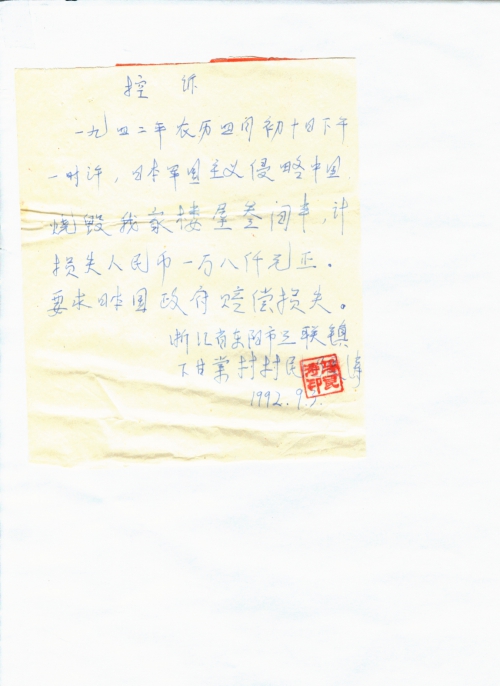 控 诉
一九四二年农历四月初十日下午
一时许，日本军国主义侵略中国
烧毁我家楼屋叁间半，计
损失人民币一万八仟元正。
要求日本国政府赔偿损失。
浙江省东阳市三联镇
下甘棠村村民
1992.9.